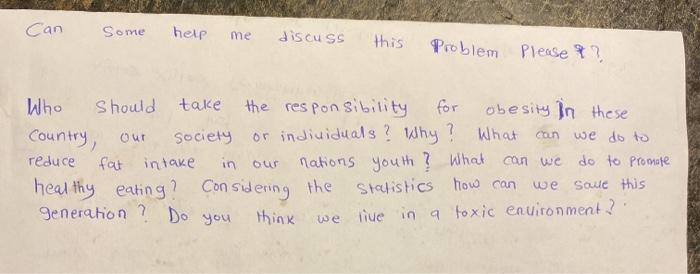 Can Some help me discuss this Problem Please ??
Who should take the responsibility for obesity in these
Country, our society or individuals? Why? What can we do to
reduce fat intake in our nations youth? What can we do to Promote
healthy eating? Considering the statistics how can we save this
generation? Do you think we live in a toxic environment?